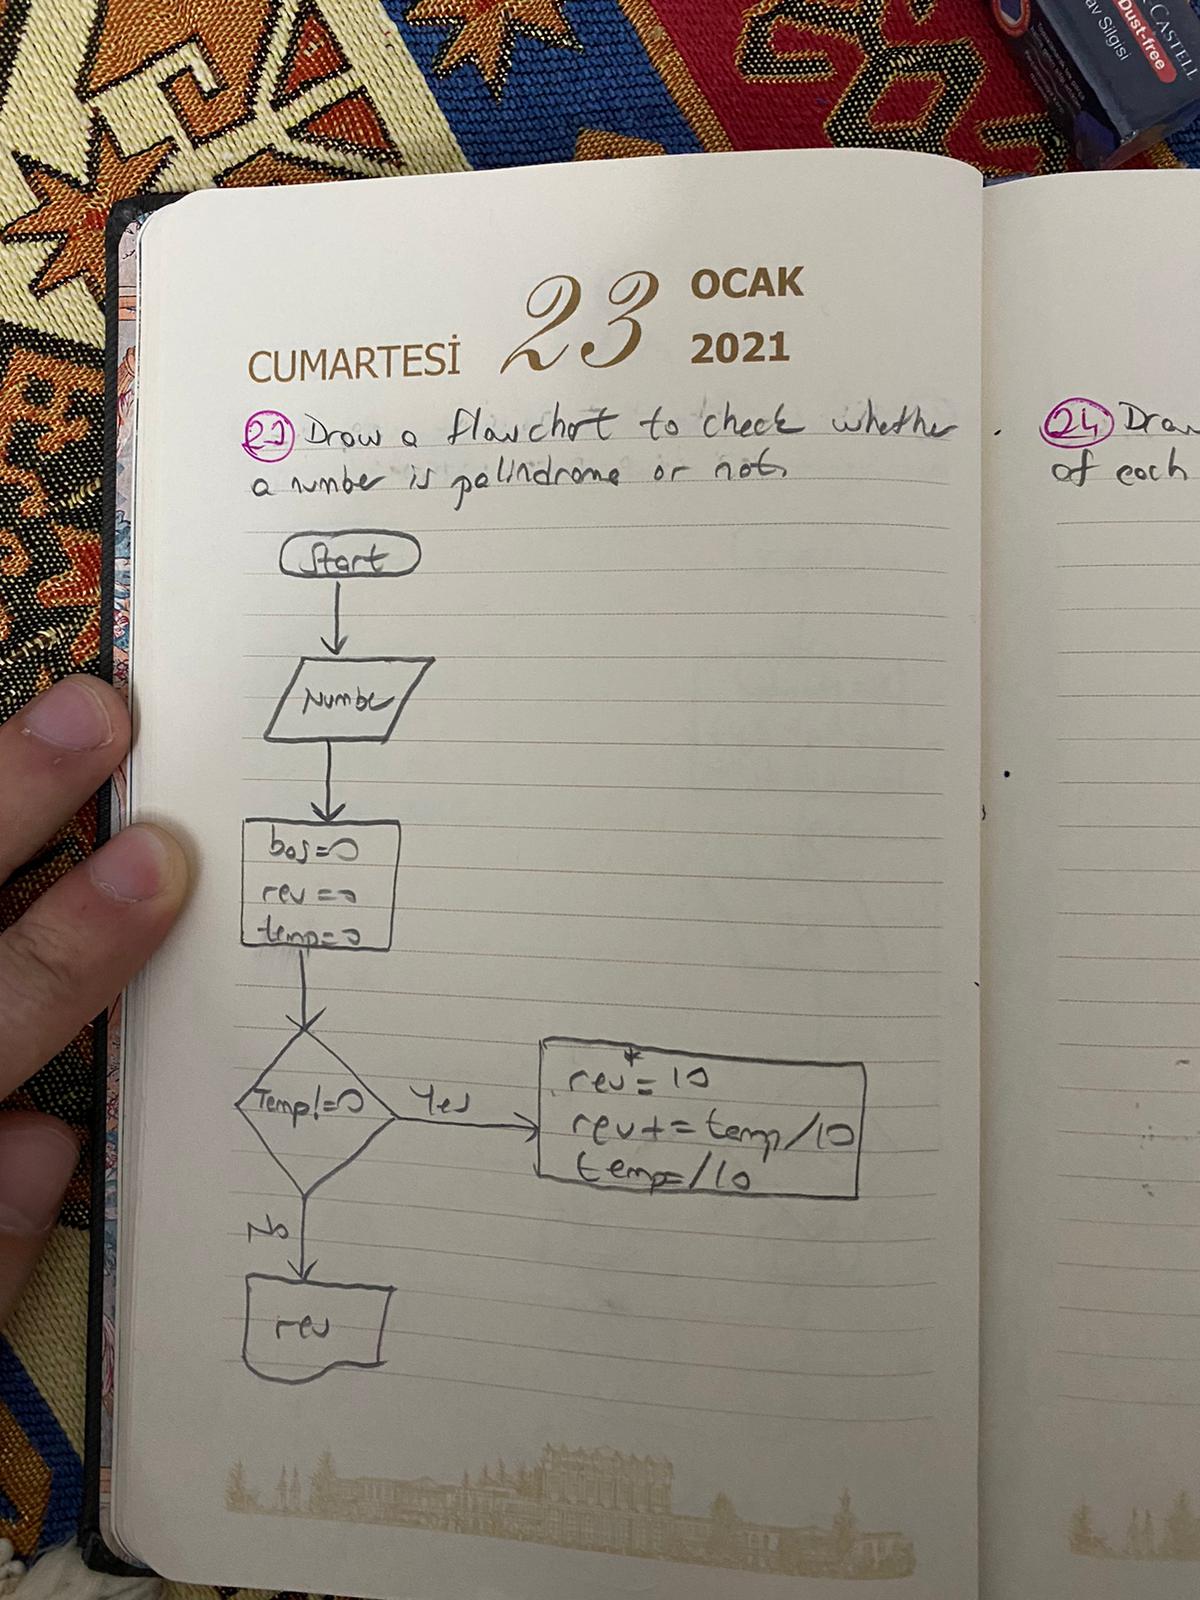 CASTELL
Dust-free
Silgisi
CUMARTESİ 23 OCAK 2021
23 Draw a flowchart to check whether
a number is palindrome or not.
Start
Number
bas=0
rev=0
temp=0
Temp!=0
Yes
rev*=10
rev+=temp/10
temp=/10
No
rev
24 Draw
of each